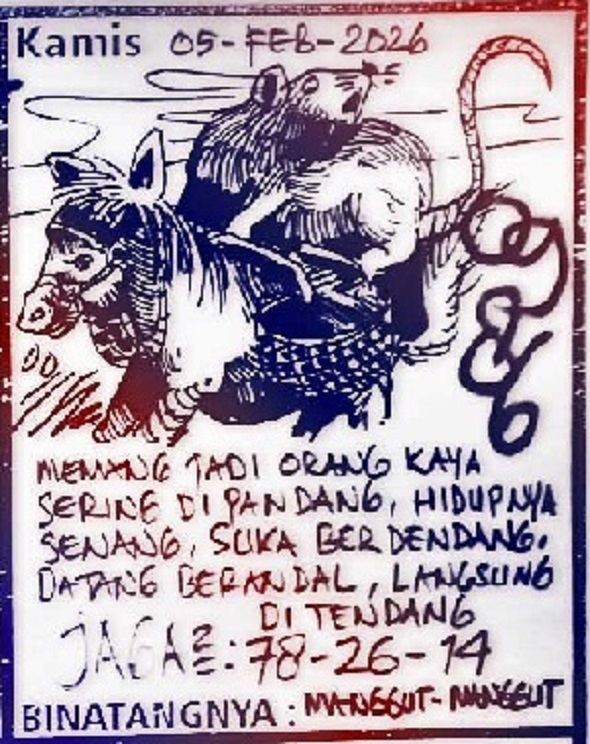 Kamis 05-FEB-2026
MEMANG JADI ORANG KAYA
SERING DIPANDANG, HIDUPNYA
SENANG, SUKA BERDENDANG.
DATANG BERANDAL, LANGSUNG
DI TENDANG
JAGA2: 78-26-14
BINATANGNYA : MANGGUT-MANGGUT